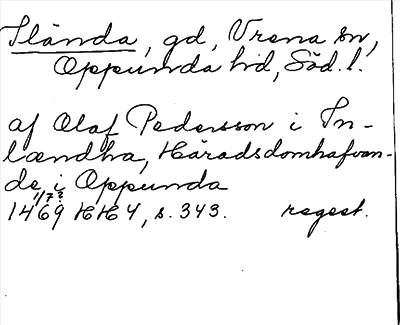 Ilända, gd, Vrena sn,
Oppunda hd, Söd. l.
af Olaf Pedersson i In-
lændha, Häradsdomhafvan-
de i Oppunda
1/7?
1469 HH 4, s. 343. regest.